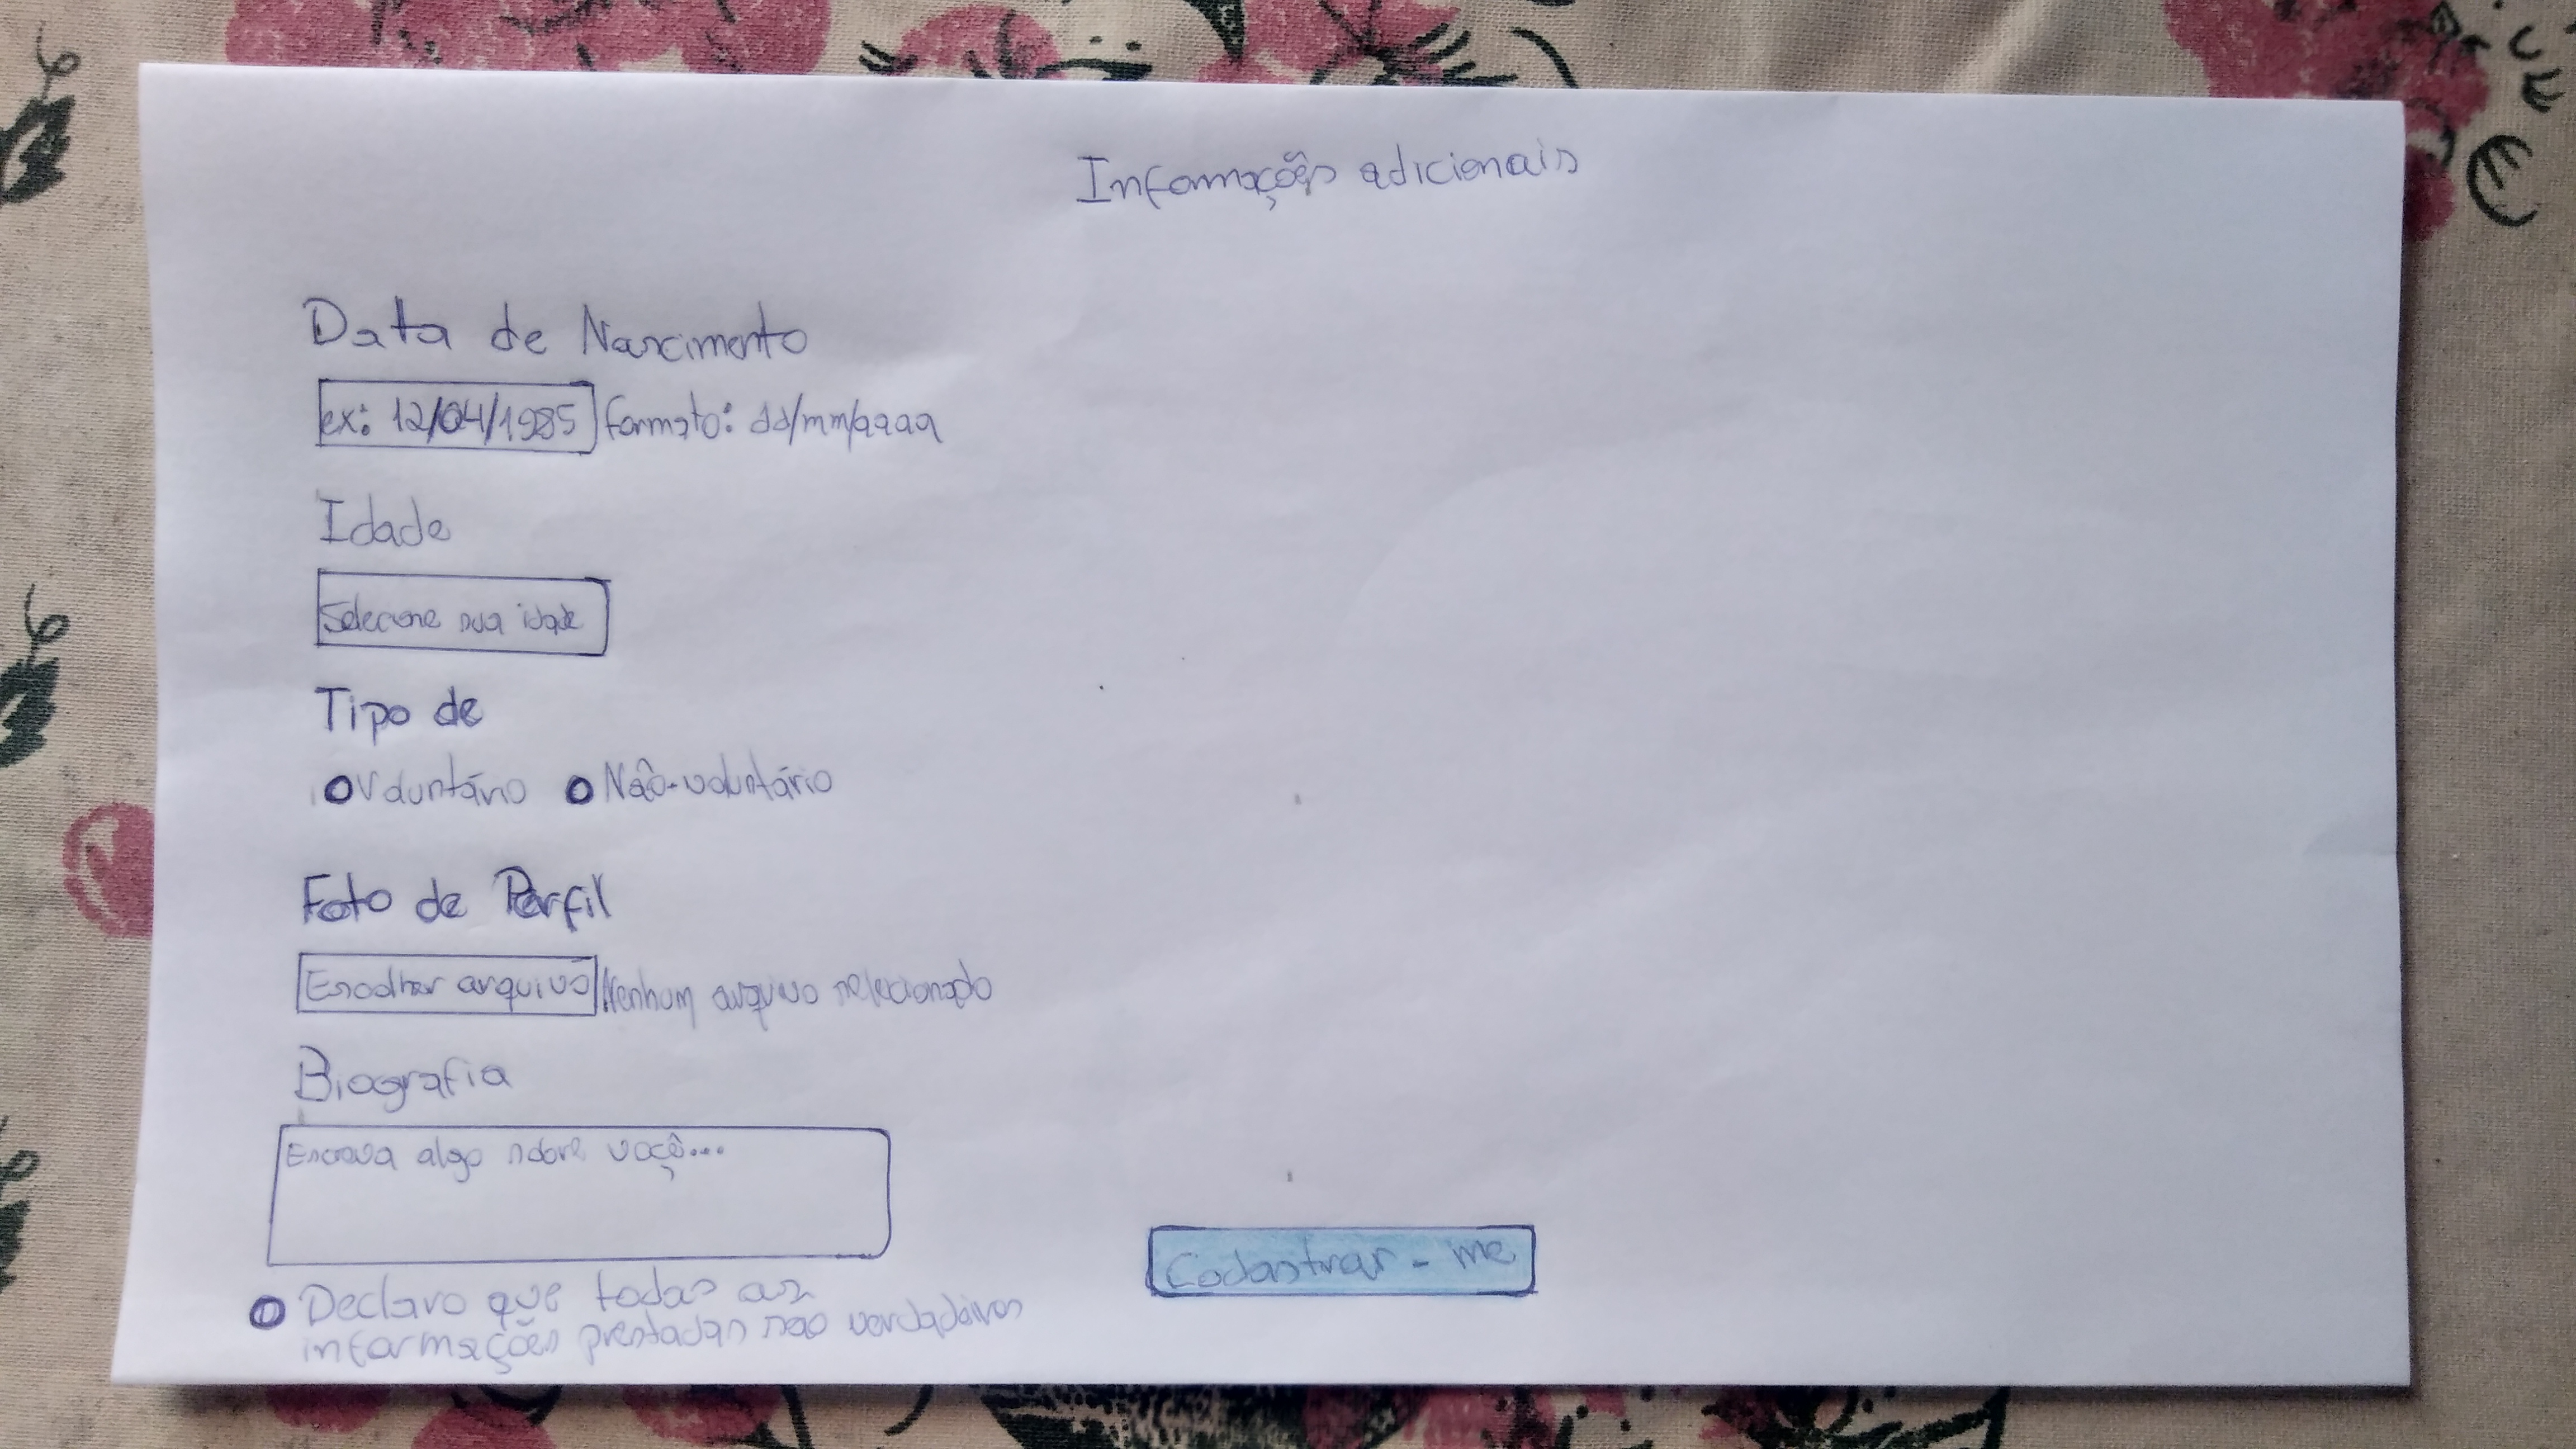 Informações adicionais
Data de Nascimento
ex: 12/04/1985 formato: dd/mm/aaaa
Idade
Selecione sua idade
Tipo de
Voluntário Não-voluntário
Foto de Perfil
Escolher arquivo Nenhum arquivo selecionado
Biografia
Escreva algo sobre voçê...
Declaro que todas as
informações prestadas são verdadeiras
Cadastrar-me